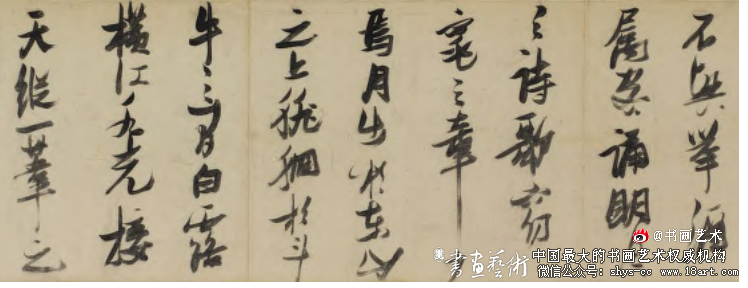 不興舉酒
屬客誦明
之詩歌窈
窕之章
焉月出於東山
之上徘徊於斗
牛之間白露
橫江水光接
天縱一葦之
@书画艺术
書畫藝術
中国最大的书画艺术权威机构
微信公众号: shys-cc www.18art.com